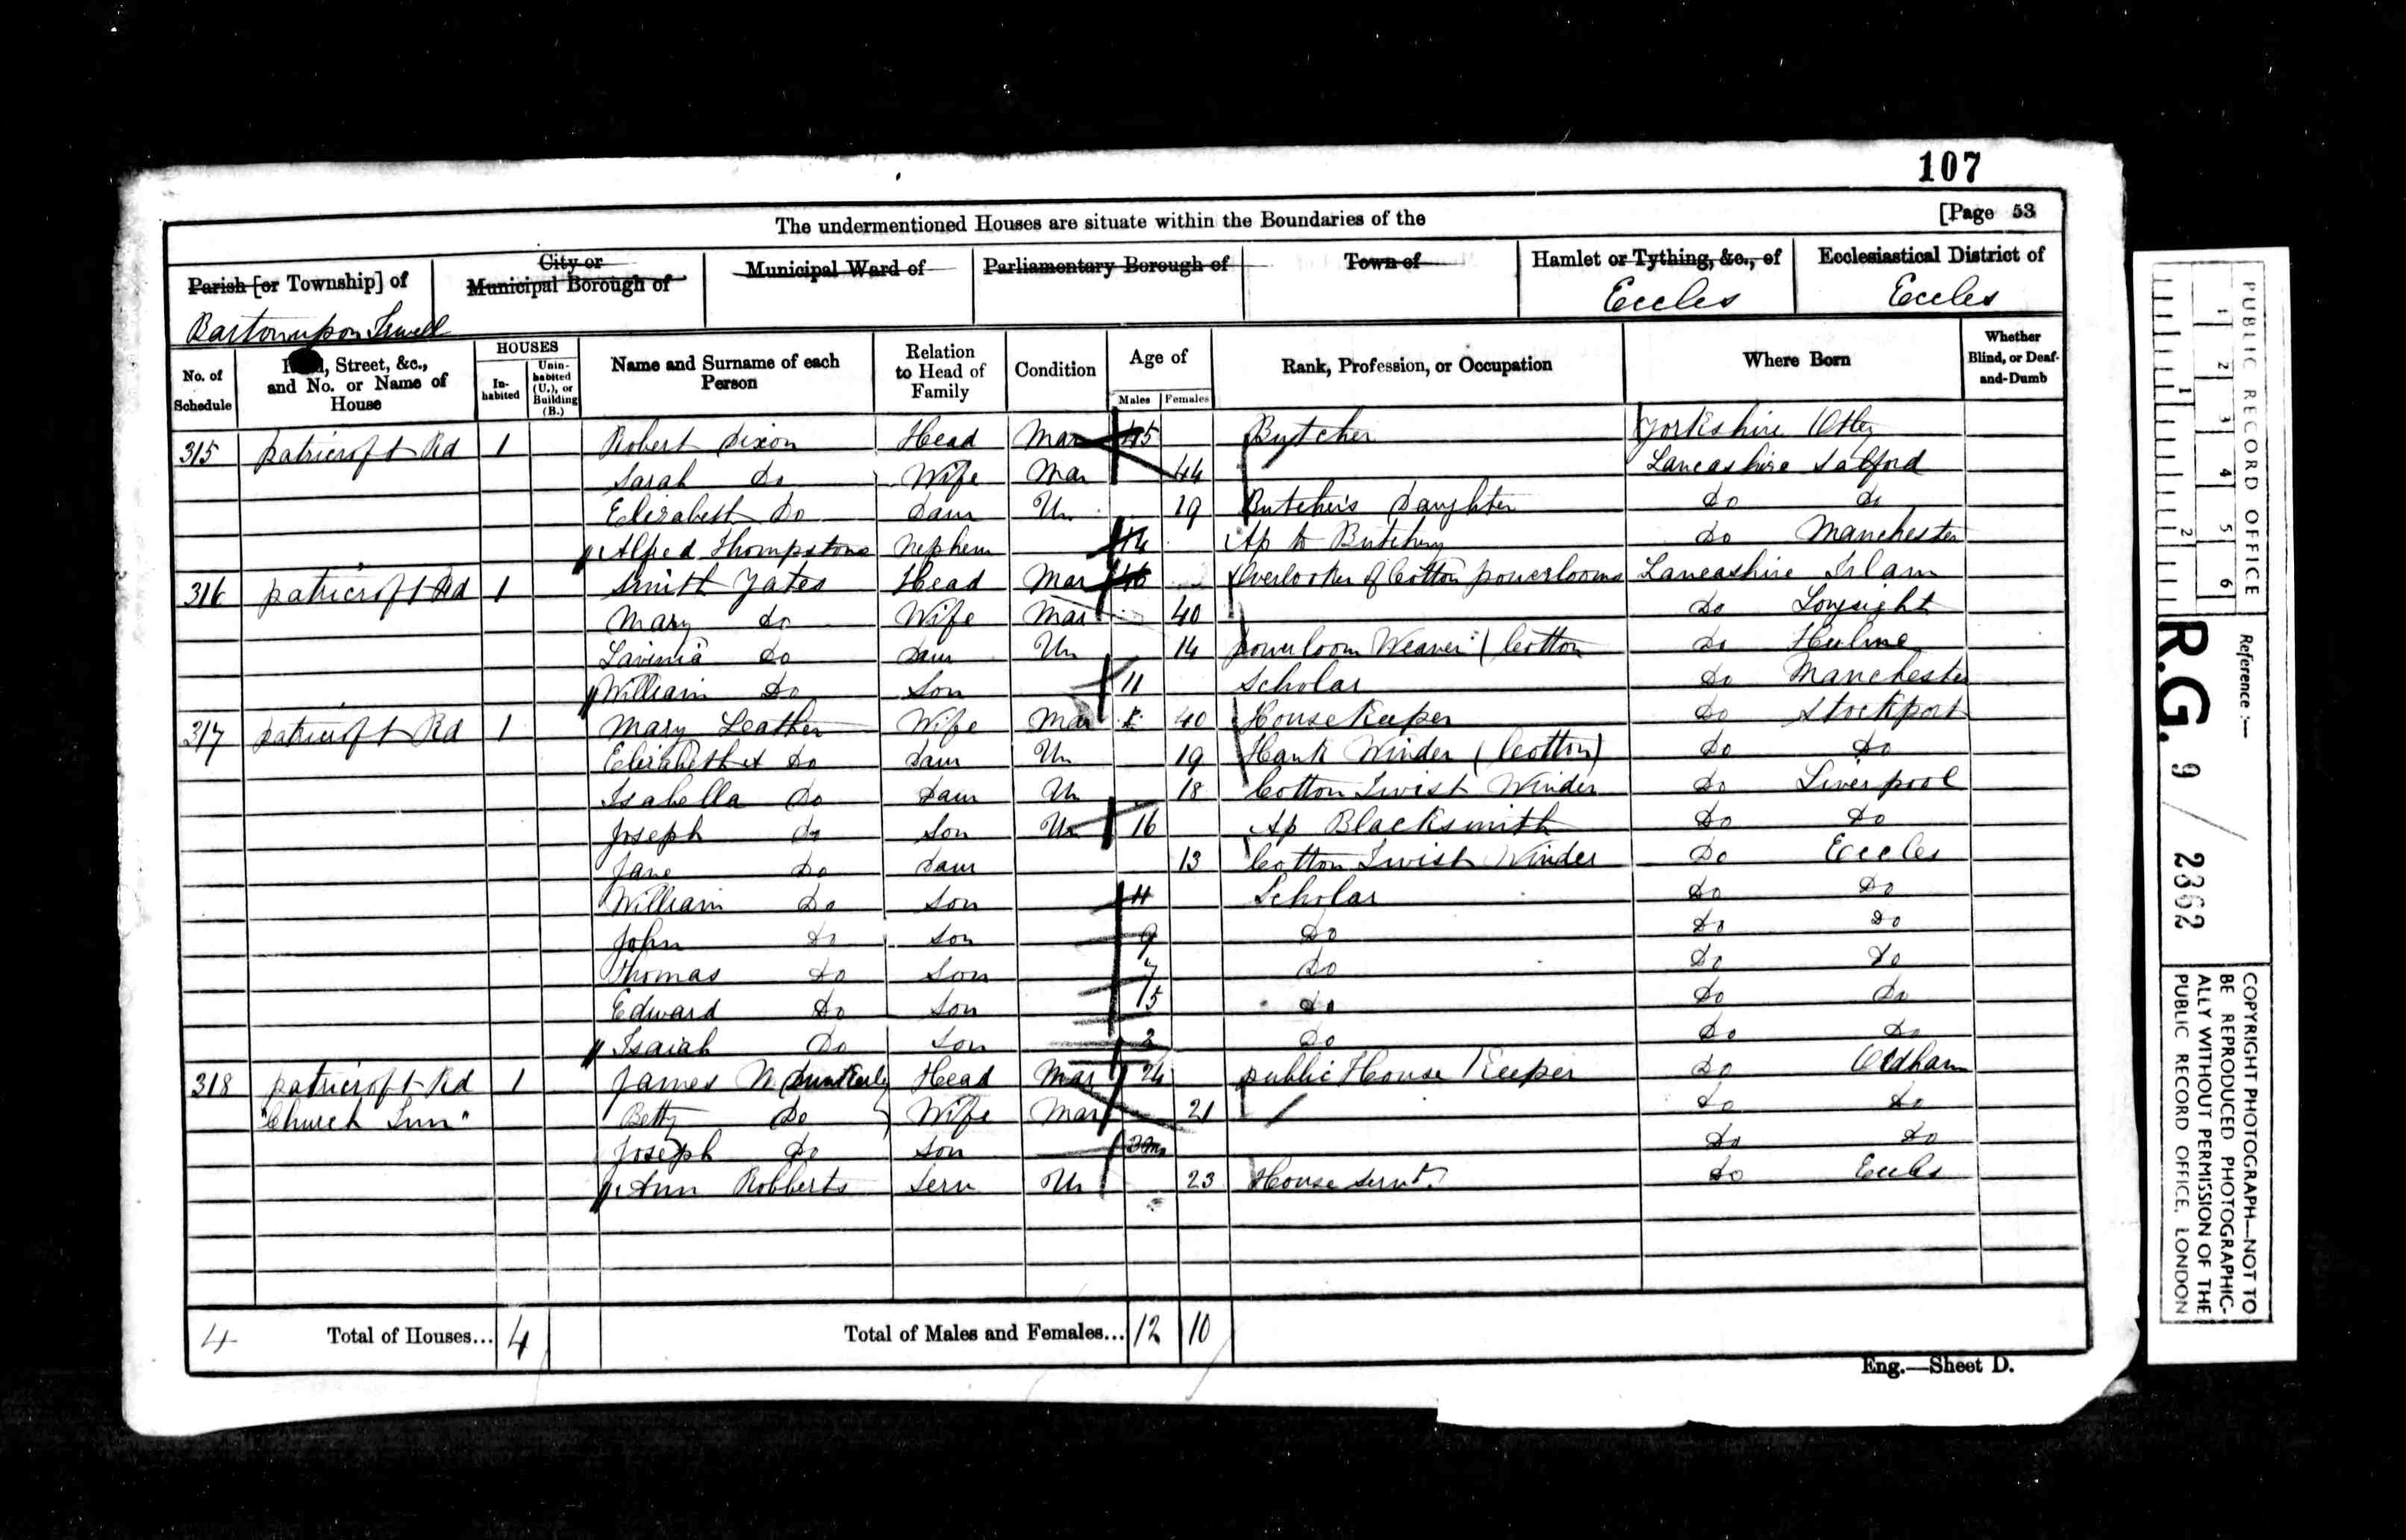 107
The undermentioned Houses are situate within the Boundaries of the [Page 53
Parish [or Township] of City or Municipal Borough of Municipal Ward of Parliamentary Borough of Town of Hamlet or Tything, &c., of Ecclesiastical District of
Barton upon Irwell Eccles Eccles
No. of Schedule Street, &c., and No. or Name of House HOUSES Inhabited Uninhabited (U.), or Building (B.) Name and Surname of each Person Relation to Head of Family Condition Age of Males Females Rank, Profession, or Occupation Where Born Whether Blind, or Deaf-and-Dumb
315 patricroft Rd 1 Robert Dixon Head Mar 45 Butcher Yorkshire Otley
Sarah Do Wife Mar 44 Lancashire Salford
Elizabeth Do Daur Un 19 Butcher's Daughter Do Do
Alfred Thompstone Nephew 14 Ap to Butchery Do Manchester
316 patricroft Rd 1 Smith Yates Head Mar 46 Overlooker of Cotton powerlooms Lancashire Irlam
Mary Do Wife Mar 40 Do Longsight
Lavinia Do Daur Un 14 powerloom Weaver (Cotton Do Hulme
William Do Son 11 Scholar Do Manchester
317 patricroft Rd 1 Mary Leather Wife Mar 40 House Keeper Do Stockport
Elizabeth Do Daur Un 19 Hank Winder (Cotton) Do Do
Isabella Do Daur Un 18 Cotton Twist Winder Do Liverpool
Joseph Do Son Un 16 Ap Blacksmith Do Do
Jane Do Daur 13 Cotton Twist Winder Do Eccles
William Do Son 11 Scholar Do Do
John Do Son 9 Do Do Do
Thomas Do Son 7 Do Do Do
Edward Do Son 5 Do Do Do
Isaiah Do Son 3 Do Do Do
318 patricroft Rd 1 James N Dunkerley Head Mar 24 public House Keeper Do Oldham
"Church Inn" Betty Do Wife Mar 21 Do Do
Joseph Do Son 3m Do Do
Ann Robberts Serv Un 23 House Servt. Do Eccles
4 Total of Houses... 4 Total of Males and Females... 12 10
Eng.—Sheet D.
PUBLIC RECORD OFFICE
1 2 3 4 5 6
1 2
Reference :—
R.G. 9 / 2362
COPYRIGHT PHOTOGRAPH—NOT TO
BE REPRODUCED PHOTOGRAPHIC-
ALLY WITHOUT PERMISSION OF THE
PUBLIC RECORD OFFICE, LONDON